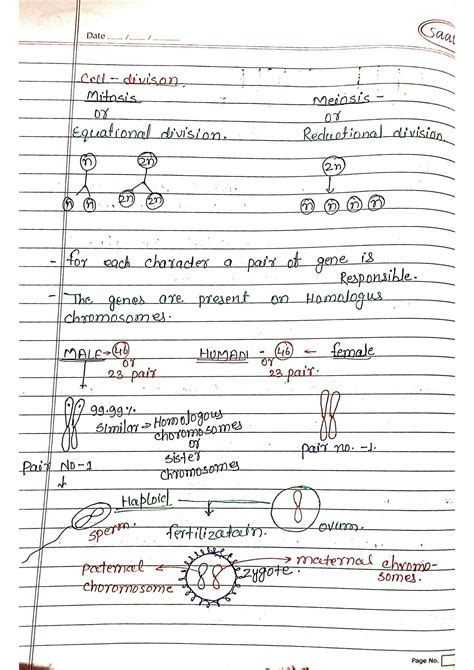 Date ___/___/___
Saat
Cell-divison
Mitosis
or
Equational division.
Meiosis -
or
Reductional division.
n 2n 2n
n n 2n 2n n n n n
- for each character a pair of gene is
Responsible.
- The genes are present on Homologus
chromosomes.
MALE → 46 HUMAN - 46 ← female
or or
23 pair 23 pair.
99.99%
similar → Homologous
choromosomes
or
sister
chromosomes
Pair NO-1
pair no. -1.
Haploid
sperm.
fertilizatain.
ovum.
paternal
choromosome
zygote.
maternal chromo-
somes.
Page No.